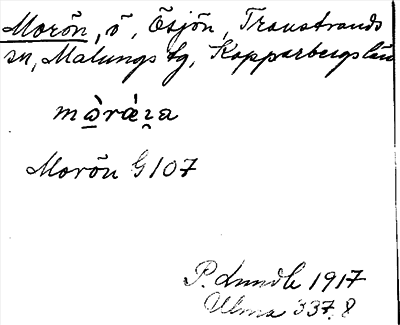 Morön, ö, Ösjön, Transtrands
sn, Malungs tg, Kopparbergs län
Morön G 107
P. Lundh 1917
Ulma 337,8